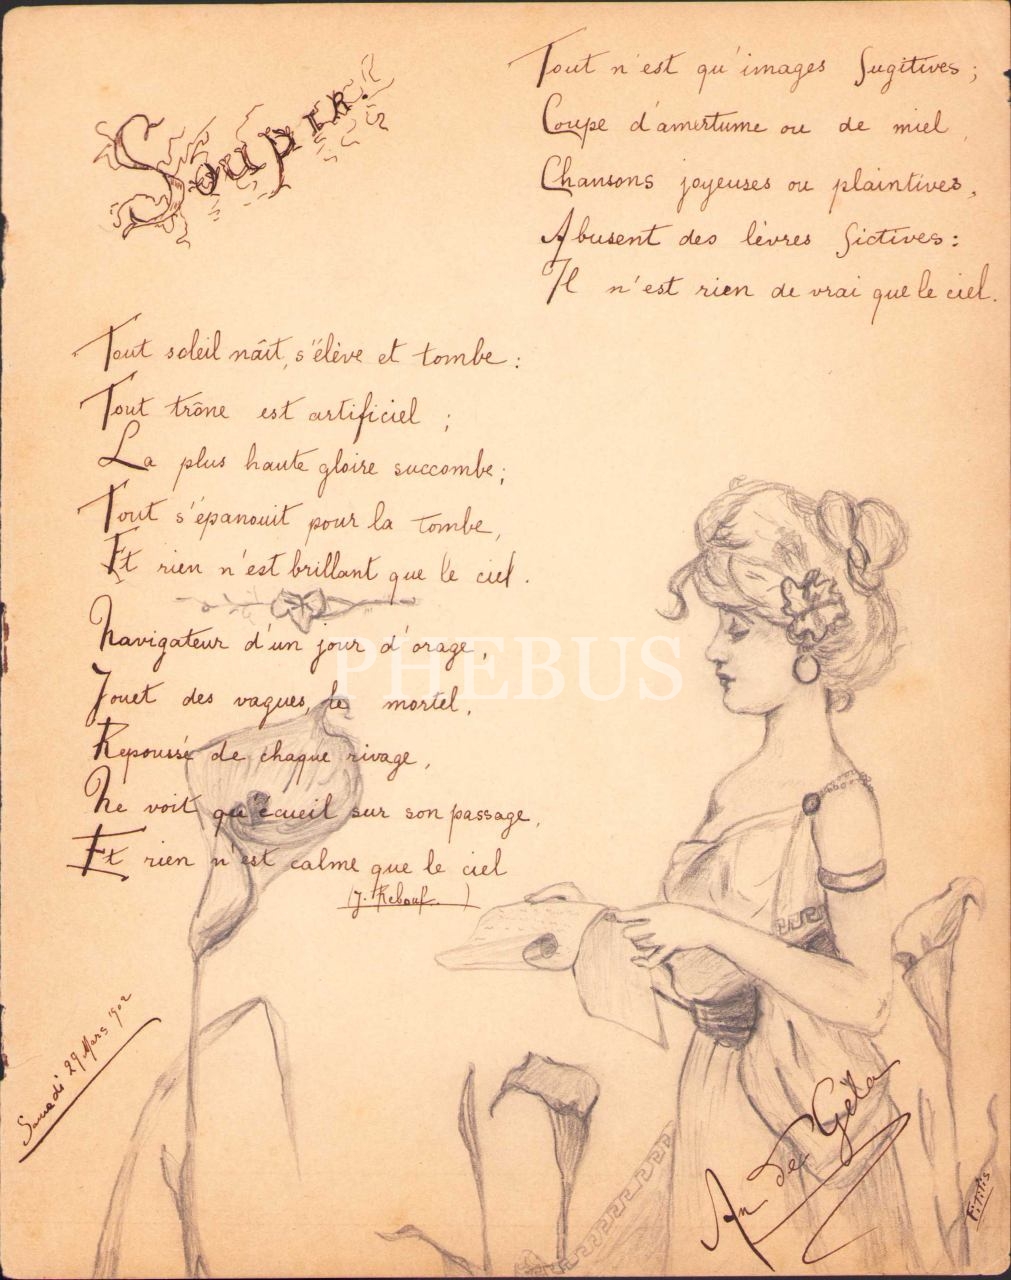 Soupir.
Tout n'est qu'images fugitives ;
Coupe d'amertume ou de miel,
Chansons joyeuses ou plaintives,
Abusent des lèvres fictives :
Il n'est rien de vrai que le ciel.
Tout soleil naît, s'élève et tombe :
Tout trône est artificiel ;
La plus haute gloire succombe ;
Tout s'épanouit pour la tombe,
Et rien n'est brillant que le ciel.
Navigateur d'un jour d'orage,
Jouet des vagues, le mortel,
Repoussé de chaque rivage,
Ne voit qu'écueil sur son passage,
Et rien n'est calme que le ciel
(J. Rebouf )
Samedi 29 Mars 1902
An de Géla
PHEBUS